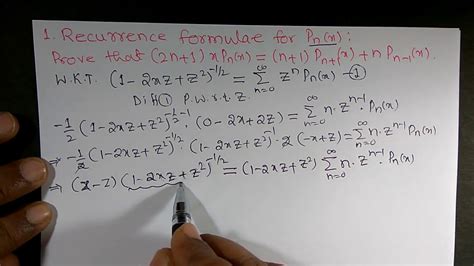 1. Recurrence formulae for Pn(x):
Prove that (2n+1) x Pn(x) = (n+1) Pn+1(x) + n Pn-1(x).
W.K.T. (1-2xz+z²)^-1/2 = ∑_{n=0}^{∞} zⁿ Pn(x) —①
Diff ① p.w.r.t. z
-1/2 (1-2xz+z²)^{-1/2-1} · (0-2x+2z) = ∑_{n=0}^{∞} n·z^{n-1} · Pn(x)
⇒ -1/2 (1-2xz+z²)^{-1/2} (1-2xz+z²)^{-1} · 2(-x+z) = ∑_{n=0}^{∞} n·z^{n-1} Pn(x)
⇒ (x-z) (1-2xz+z²)^{-1/2} = (1-2xz+z²) ∑_{n=0}^{∞} n·z^{n-1} · Pn(x)